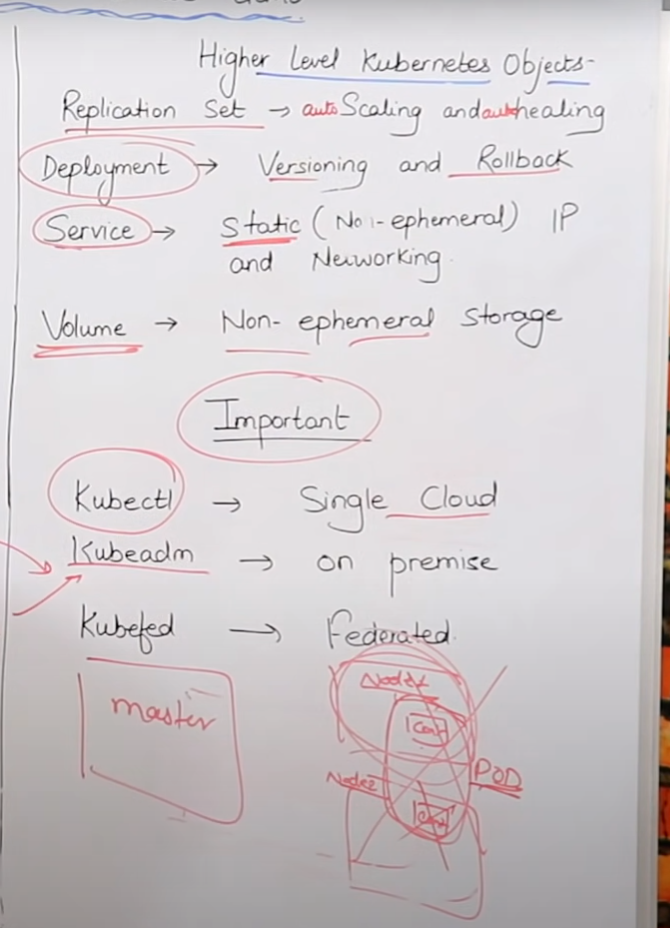 Higher Level Kubernetes Objects-
Replication Set → auto Scaling and auto healing
Deployment → Versioning and Rollback
Service → Static (Non-ephemeral) IP
and Networking.
Volume → Non-ephemeral Storage
Important
Kubectl → Single Cloud
Kubeadm → on premise
Kubefed → Federated.
master
Node1
Cont
Node2
POD
Cont